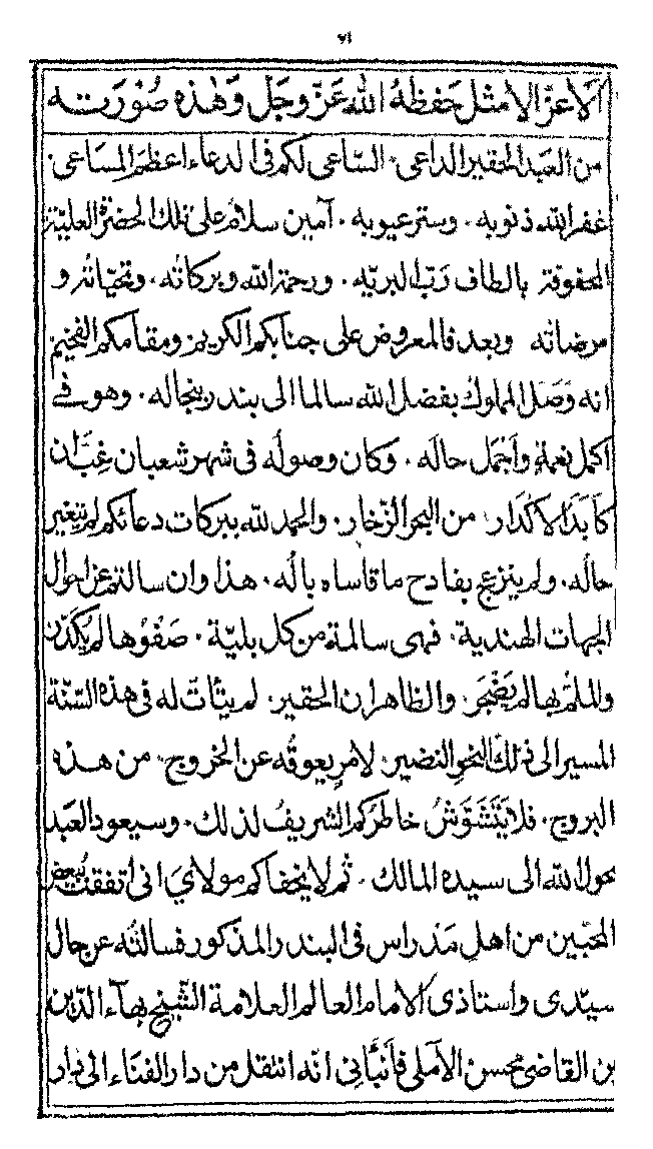 ٧١
الاعزّ الامثل حَفظهُ الله عَزّ وجَلّ وَهٰذه صُوْرَتــه
من العَبد الحقير الداعى، السّاعى لكم فى الدعاء اعظم المسَاعى
غفر الله ذنوبه، وستر عيوبه، آمين سلامٌ على تلك الحضرة العليّة
المحفوفة بالطاف رَبّ البريّه، ورحمة الله وبركاته، وتحيّاته و
مرضاته وبعد فالمعروض على جنابكم الكريم ومقامكم الفخيم
انه وَصَل المملوكُ بفضل الله سالما الى بندر بنجاله، وهو فے
اكمل نعمةٍ واَجْمَل حالَه، وَكان وصولُه فى شهر شعبان غِبَّ اَن
كَابَدَ الاَكْدَار من البحر الزّخار، والحمد لله ببركات دعائكم لم يتغير
حالُه، ولم ينزعج بفادح ما قاساه بالُه، هذا وان سالتم عن احوال
الجهات الهندية، فهى سالمة من كل بليّة، صَفْوُها لم يُكَدَّر
والملمّ بها لم يَضْجَر، والظاهر ان الحقير، لم يتأتّ له فى هذه السَّنة
المسير الى ذلك النحو النضير، لامرٍ يعوقُه عن الخروج، من هــذه
البروج، فلا يَتَشَوَّشُ خاطرُكم الشريفُ لذلك، وسيعود العَبد
بحول الله الى سيده المالك، ثم لا يخفاكم مولايَ انى اتفقتُ ببعض
المحبّين من اهل مَدْراس فى البندر المذكور فسالتُه عن حال
سيّدى واستاذى الامام العالم العلامة الشّيخ بهآء الدّين
بن القاضى محسن الآملى فاَنْبَأنِى انّه انتقل من دار الفنَاء الى دار